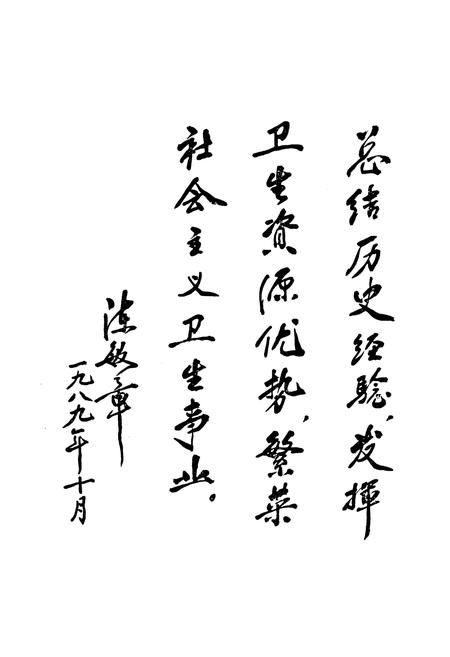 总结历史经验，发揮
卫生資源优势，繁荣
社会主义卫生事业。
陈敏章
一九八九年十月